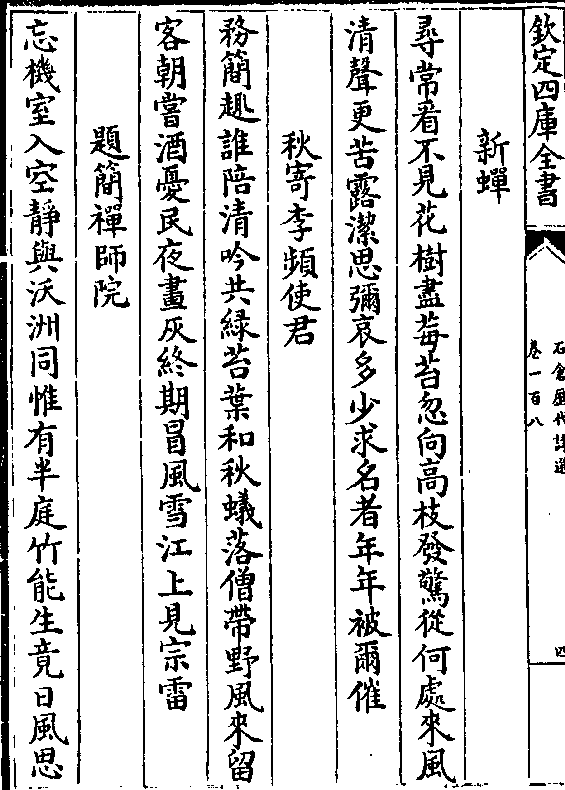 欽定四庫全書
石倉歷代詩選
卷一百八
四
新蟬
尋常看不見花樹盡莓苔忽向高枝發驚從何處來風
清聲更苦露潔思彌哀多少求名者年年被爾催
秋寄李頻使君
務簡趣誰陪清吟共綠苔葉和秋蟻落僧帶野風來留
客朝嘗酒憂民夜畫灰終期冒風雪江上見宗雷
題簡禪師院
忘機室入空靜與沃洲同惟有半庭竹能生竟日風思